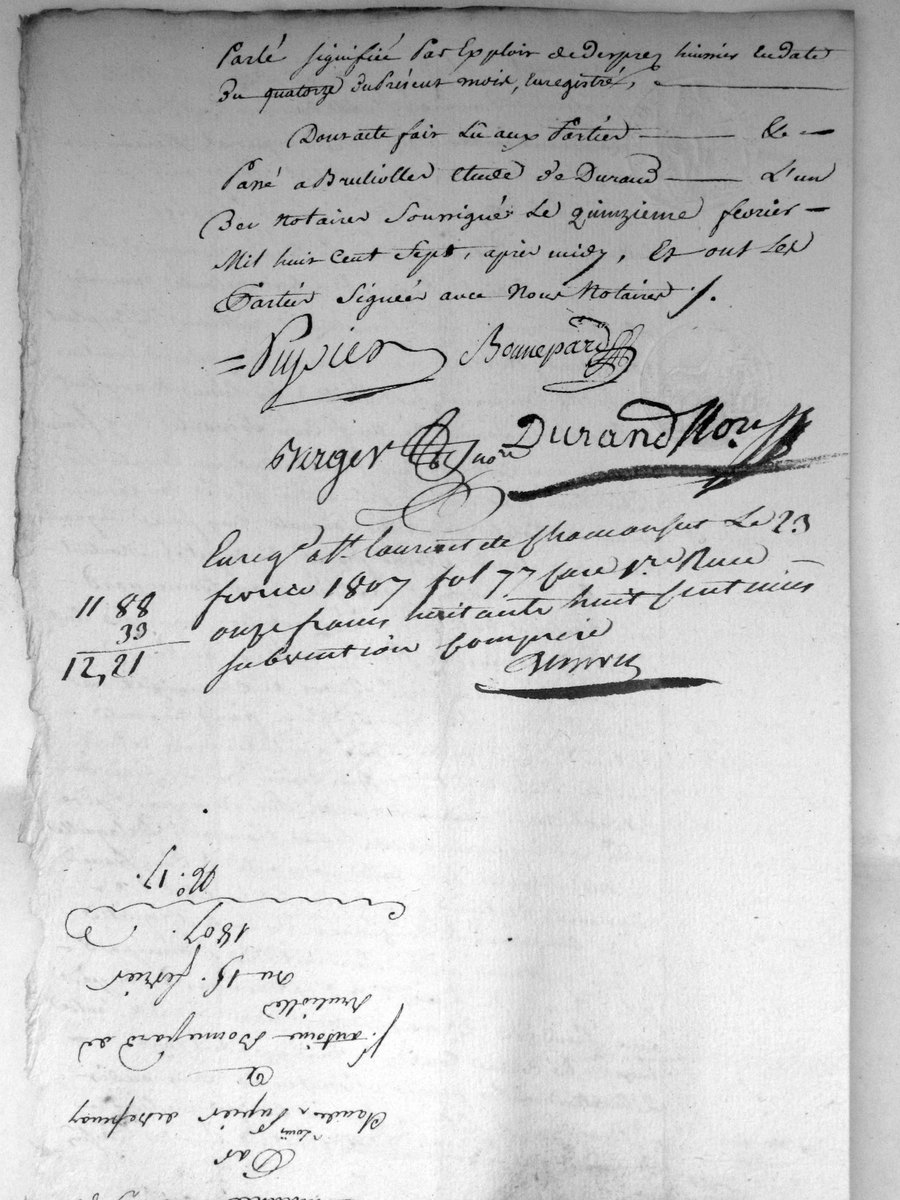 Parlé signifiée Par Exploit de desprez huissier en date
Du quatorze du Présent mois, enregistré,
Dont acte fait Lû aux Parties &
Passé a Brullioller Etude de Durand L'un
Des Notaires Soussignés Le quinzieme fevrier
Mil huit Cent Sept, après midy, Et ont Les
Parties Signées avec Nous Notaires
Pupier Bonnepard
Berger nore Durand Nore
Enregé a St. Laurent de Chamousset Le 23
fevrier 1807 fol 77 case 1re Reçu
11 88 onze francs huitante huit Centimes
33
12,21 subvention Comprise
No. 17.
1807.
Du 15. fevrier
Brulioller
antoine Bonnepard de
a
Claude Louis Pupier de
Par